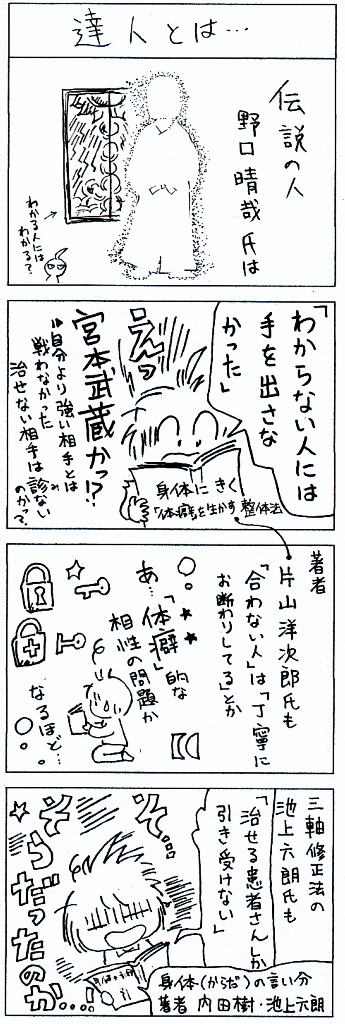 達人とは…
伝説の人
野口晴哉氏は
わかる人には
わかる?
「わからない人には
手を出さな
かった」
えっ
宮本武蔵かっ!?
自分より強い相手とは
戦わなかった
治せない相手は診ない
み
のかっ?
身体にきく
「体癖」を生かす整体法
著者
片山洋次郎氏も
「合わない人」は「丁寧に
お断わりしてる」とか
あ…「体癖」的な
相性の問題か
なるほど…
三軸修正法の
池上六朗氏も
「治せる患者さんしか
引き受けない」
そ…
そうだったのか…!
身体(からだ)の言い分
著者 内田樹・池上六朗